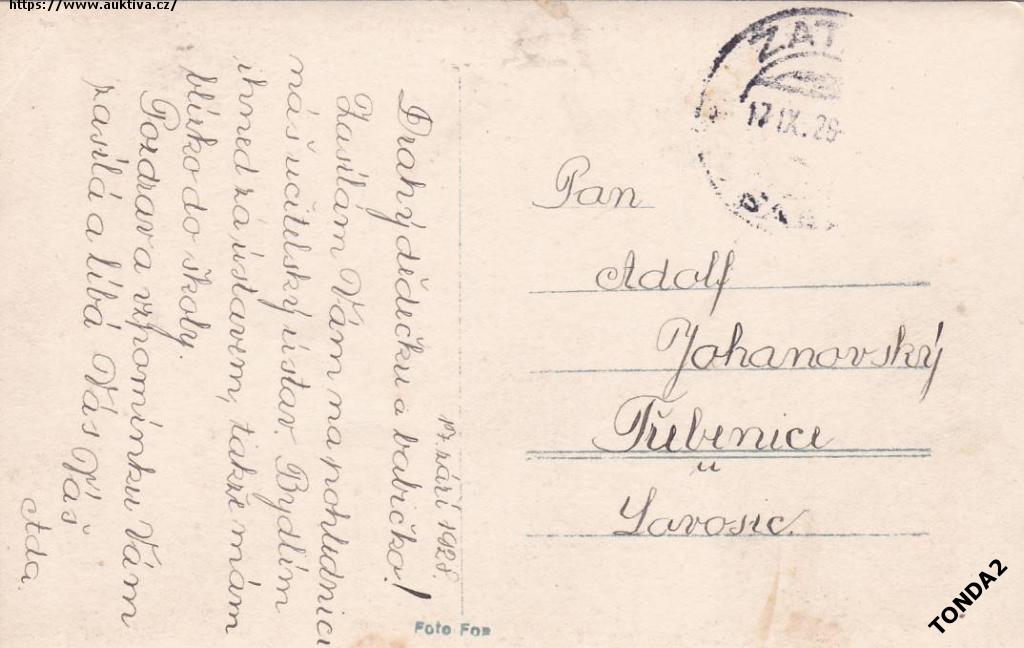 https://www.auktiva.cz/
17. září 1928.
Drahý dědečku a babičko!
Zasílám Vám na pohlednici
náš učitelský ústav. Bydlím
ihned zá ústavem, takže mám
blízko do školy.
Pozdrav a vzpomínku Vám
zasílá a líbá Vás Váš
Ada.
ŽAT
17.IX.28
SAA
Pan
Adolf
Johanovský
Třebenice
u
Lovosic.
Foto Fon
TONDA2